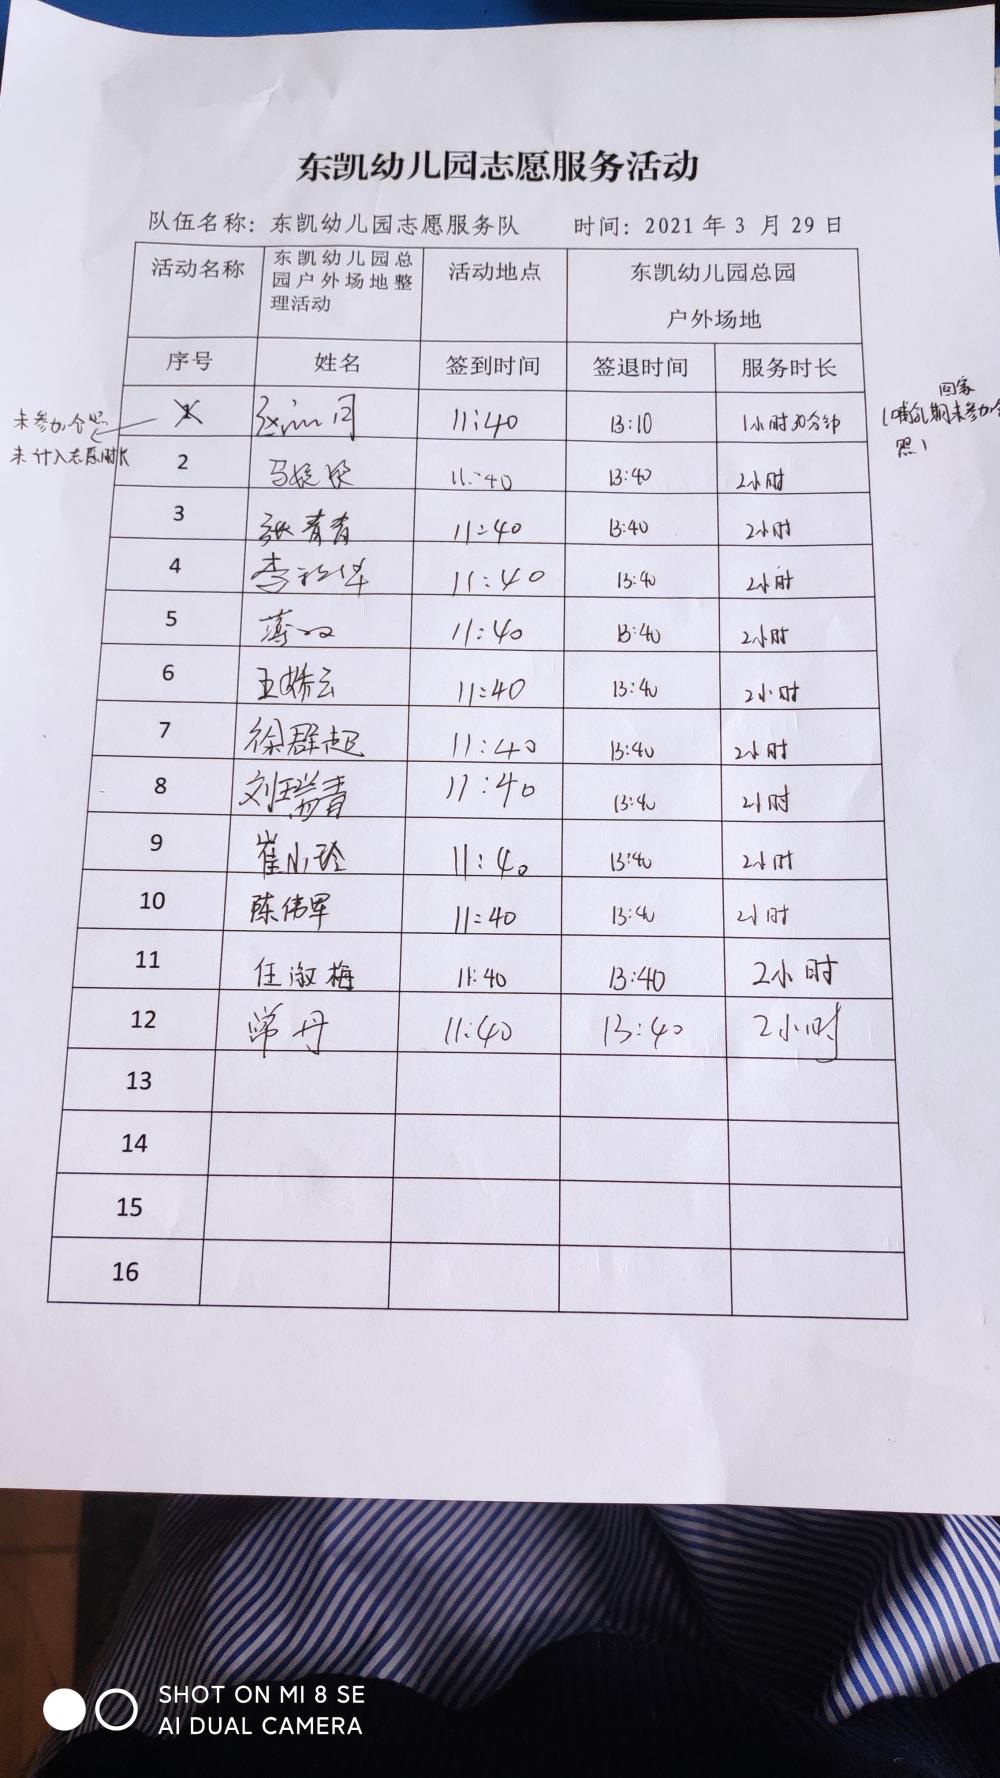 东凯幼儿园志愿服务活动
队伍名称：东凯幼儿园志愿服务队 时间：2021 年 3 月 29 日
活动名称 东凯幼儿园总园户外场地整理活动 活动地点 东凯幼儿园总园
户外场地
序号 姓名 签到时间 签退时间 服务时长
回家
未参加合照 1 11:40 13:10 1小时30分钟 (哺乳期未参加合
未计入志愿时长 照)
2 11:40 13:40 2小时
3 张青青 11:40 13:40 2小时
4 11:40 13:40 2小时
5 11:40 13:40 2小时
6 王娇云 11:40 13:40 2小时
7 徐群超 11:40 13:40 2小时
8 刘瑞青 11:40 13:40 2小时
9 崔小玲 11:40 13:40 2小时
10 陈伟军 11:40 13:40 2小时
11 任淑梅 11:40 13:40 2小时
12 常丹 11:40 13:40 2小时
13
14
15
16
SHOT ON MI 8 SE
AI DUAL CAMERA